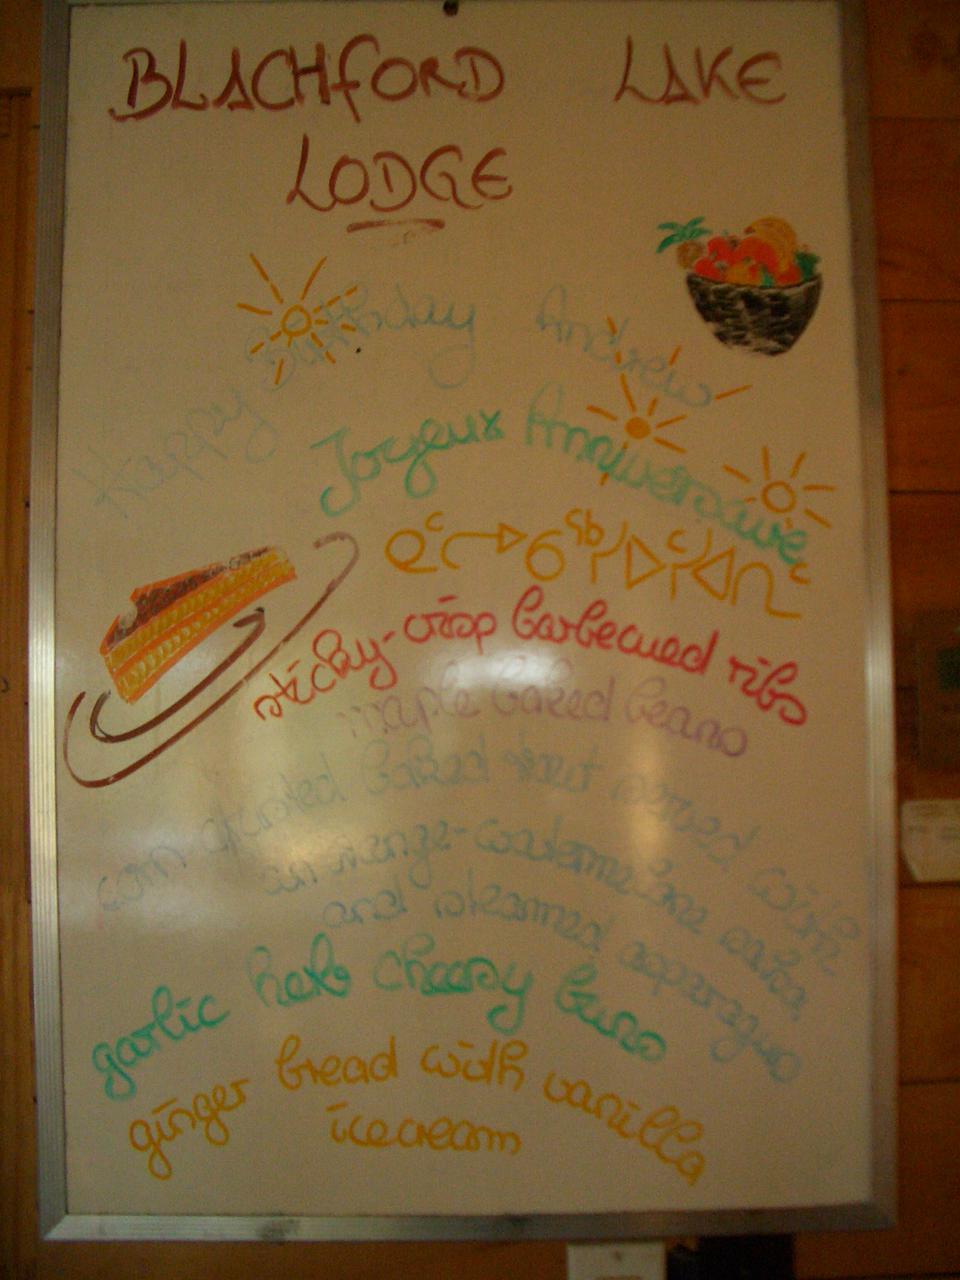 BLACHFORD LAKE
LODGE
Happy Birthday Andrew
Joyeux Anniversaire
sticky-crisp barbecued ribs
maple baked beans
corn crusted baked trout served with
an orange-watermelone salsa
and steamed asparagus
garlic herb cheesy buns
ginger bread with vanilla
icecream